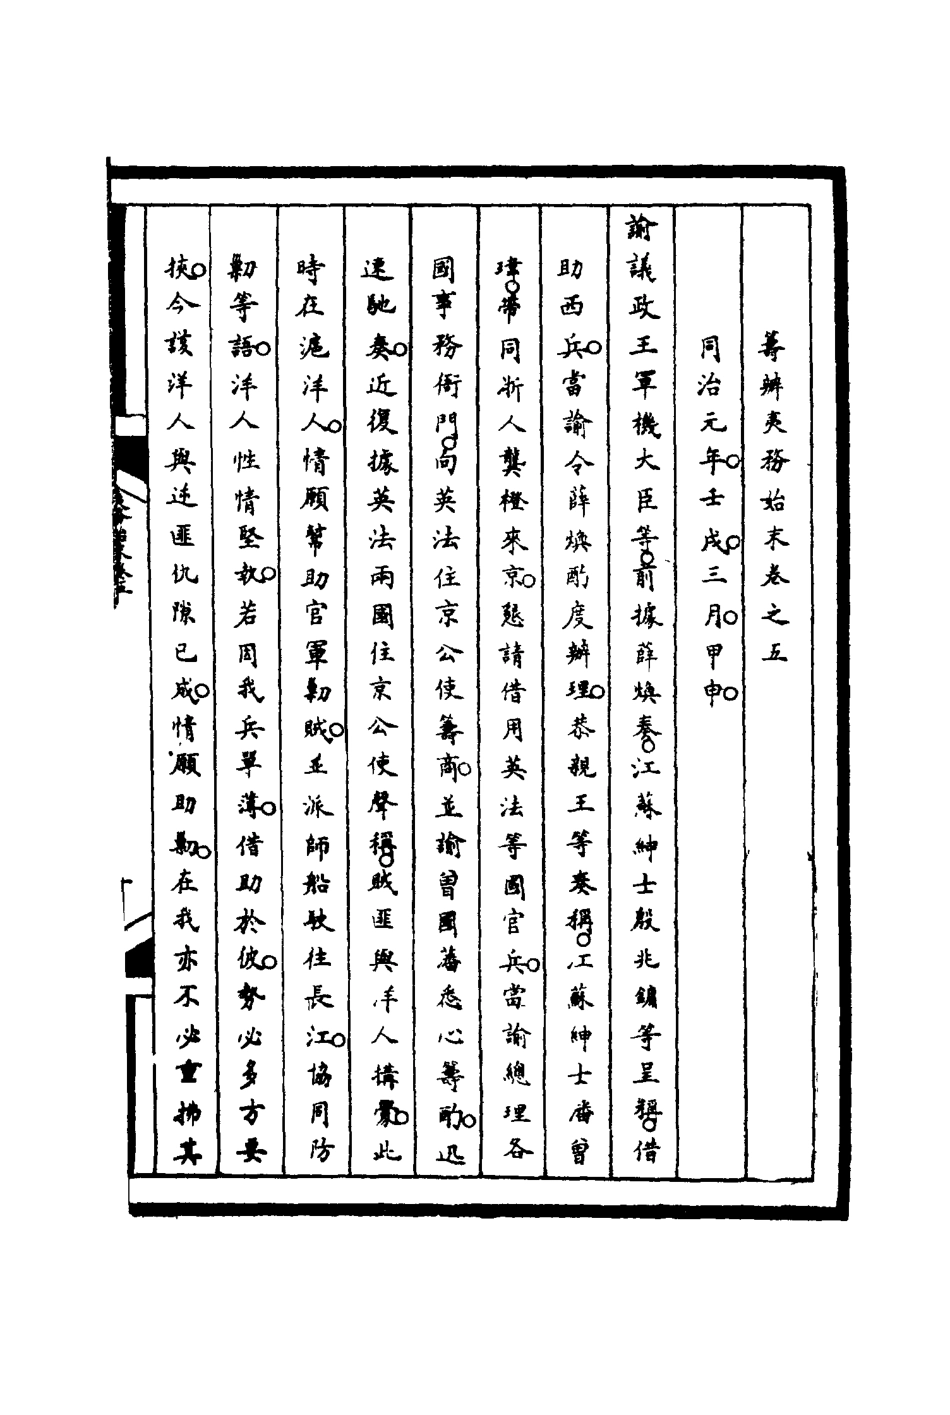 籌辦夷務始末卷之五
同治元年。壬戌。三月。甲申。
諭議政王軍機大臣等。前據薛煥奏。江蘇紳士殷兆鏞等呈稱。借
助西兵。當諭令薛煥酌度辦理。恭親王等奏稱。江蘇紳士潘曾
瑋。帶同浙人龔橙來京。懇請借用英法等國官兵。當諭總理各
國事務衙門。向英法住京公使籌商。並諭曾國藩悉心籌酌。迅
速馳奏。近復據英法兩國住京公使聲稱。賊匪與洋人搆釁。此
時在滬洋人。情願幫助官軍勦賊。並派師船駛往長江。協同防
勦等語。洋人性情堅執。若因我兵單薄。借助於彼。勢必多方要
挾。今該洋人與逆匪仇隙已成。情願助勦。在我亦不必重拂其